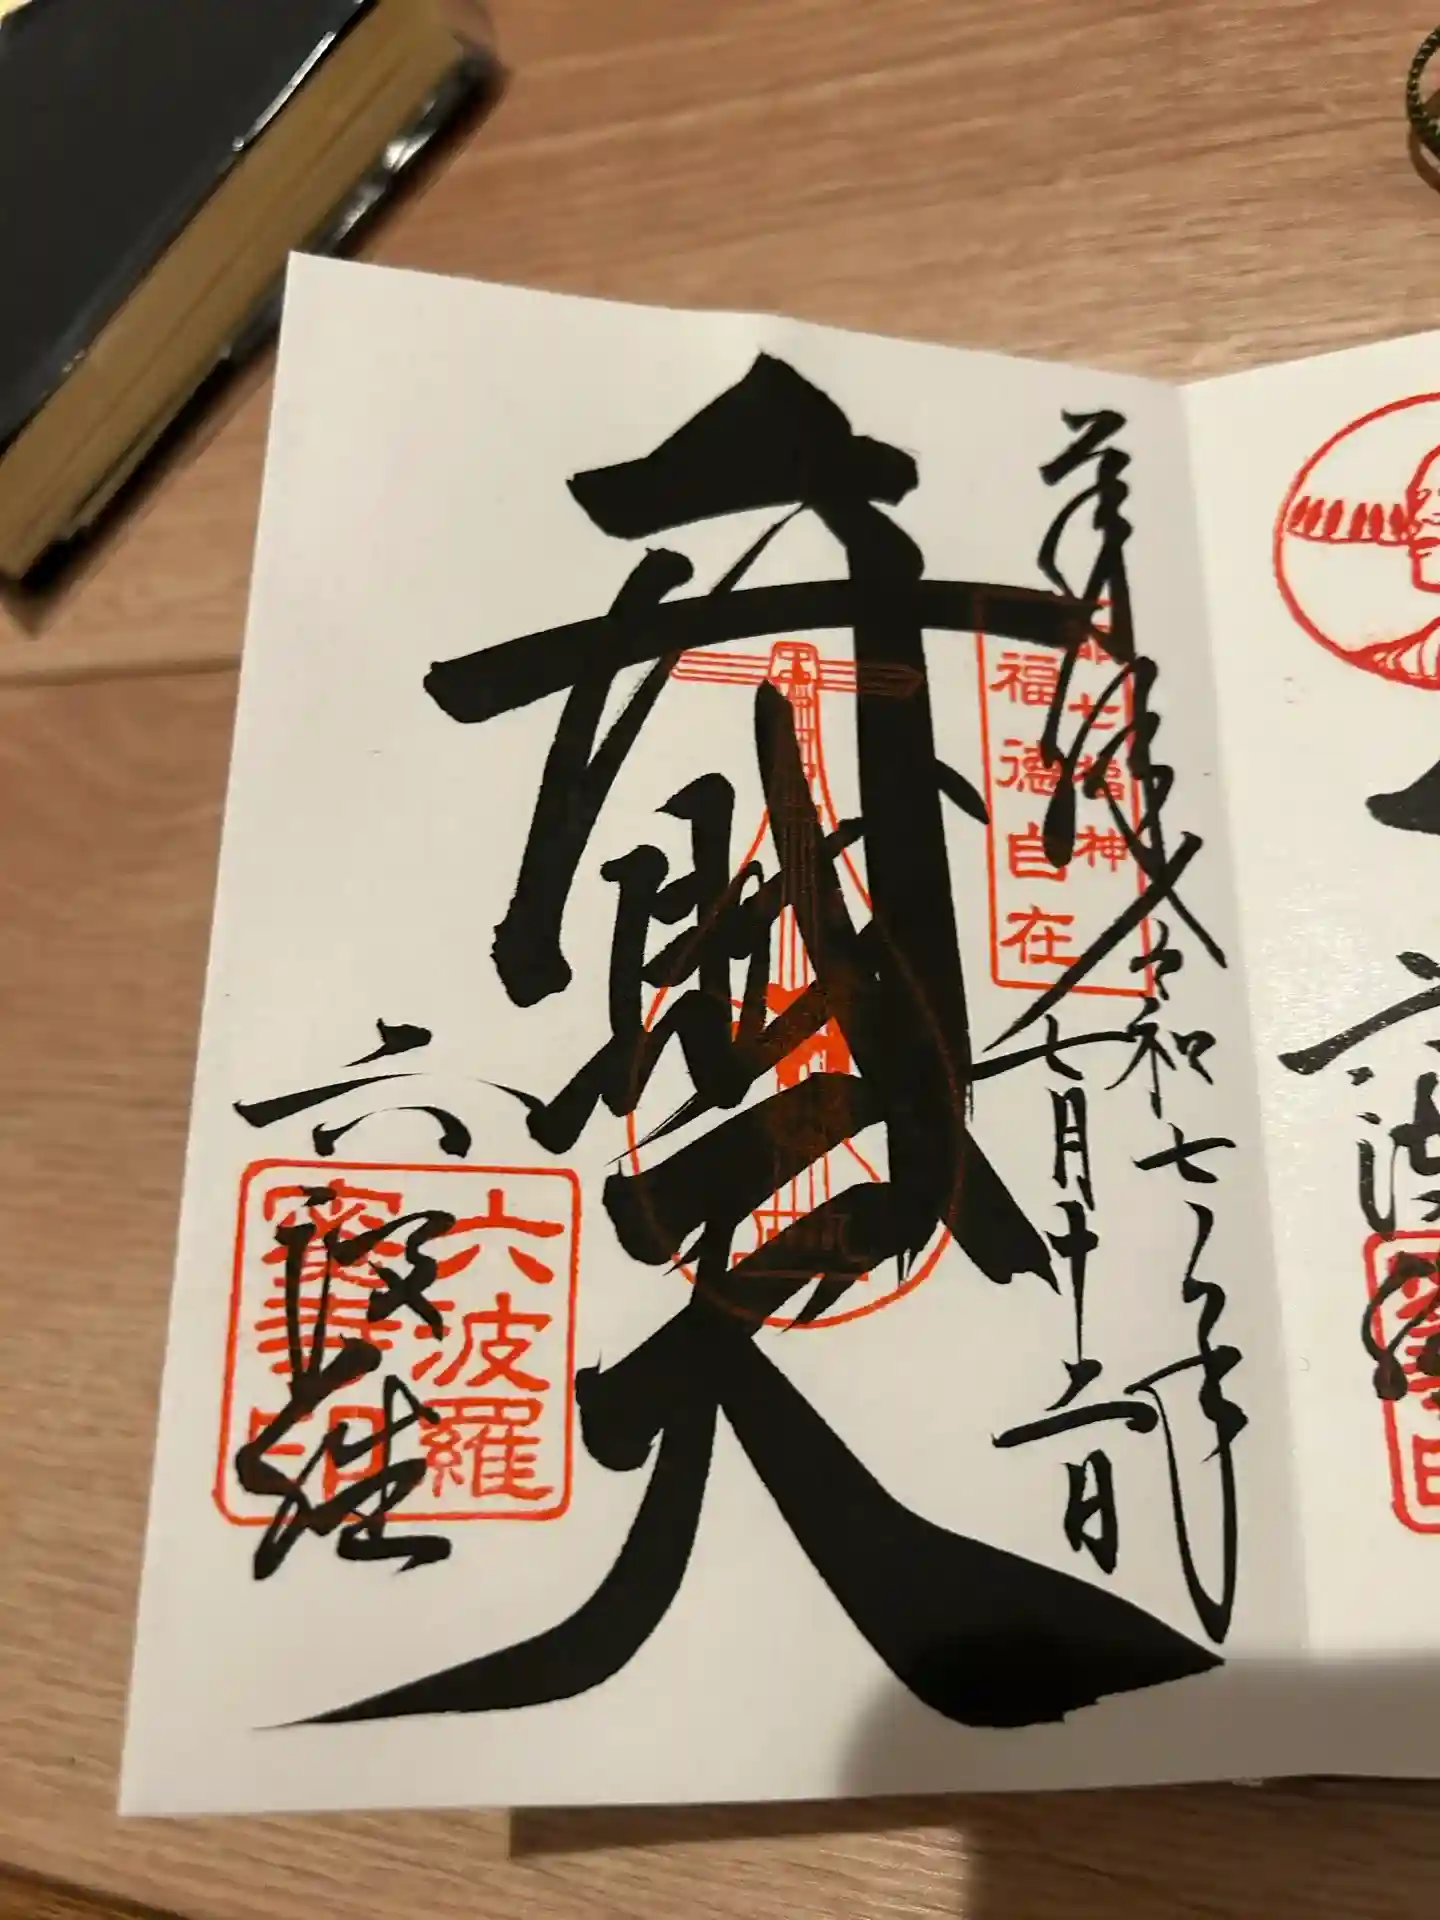 奉拝
令和七年
七月十二日
都七福神
福徳自在
弁財天
六波羅
六波羅
蜜寺印